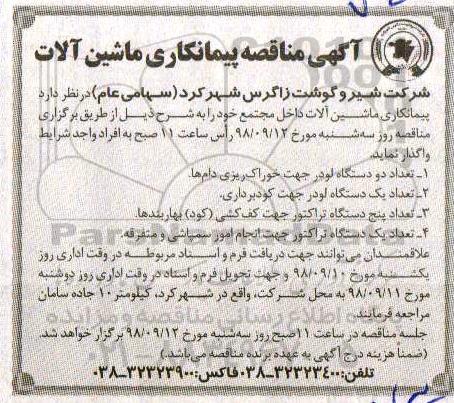 آگهی مناقصه پیمانکاری ماشین آلات
شرکت شیر و گوشت زاگرس شهرکرد (سهامی عام) در نظر دارد
پیمانکاری ماشین آلات داخل مجتمع خود را به شرح ذیل از طریق برگزاری
مناقصه روز سه‌شنبه مورخ ۹۸/۰۹/۱۲ رأس ساعت ۱۱ صبح به افراد واجد شرایط
واگذار نماید.
۱ـ تعداد دو دستگاه لودر جهت خوراک‌ریزی دام‌ها.
۲ـ تعداد یک دستگاه لودر جهت کودبرداری.
۳ـ تعداد پنج دستگاه تراکتور جهت کف‌کشی (کود) بهاربندها.
۴ـ تعداد یک دستگاه تراکتور جهت انجام امور سمپاشی و متفرقه
علاقمندان می‌توانند جهت دریافت فرم و اسناد مربوطه در وقت اداری روز
یکشنبه مورخ ۹۸/۰۹/۱۰ و جهت تحویل فرم و اسناد در وقت اداری روز دوشنبه
مورخ ۹۸/۰۹/۱۱ به محل شرکت، واقع در شهرکرد، کیلومتر ۱۰ جاده سامان
مراجعه فرمایند.
جلسه مناقصه در ساعت ۱۱ صبح روز سه‌شنبه مورخ ۹۸/۰۹/۱۲ برگزار خواهد شد.
(ضمناً هزینه درج آگهی به عهده برنده مناقصه می‌باشد.)
تلفن: ۳۲۳۲۳۴۰۰-۰۳۸ فاکس: ۳۲۳۲۳۹۰۰-۰۳۸